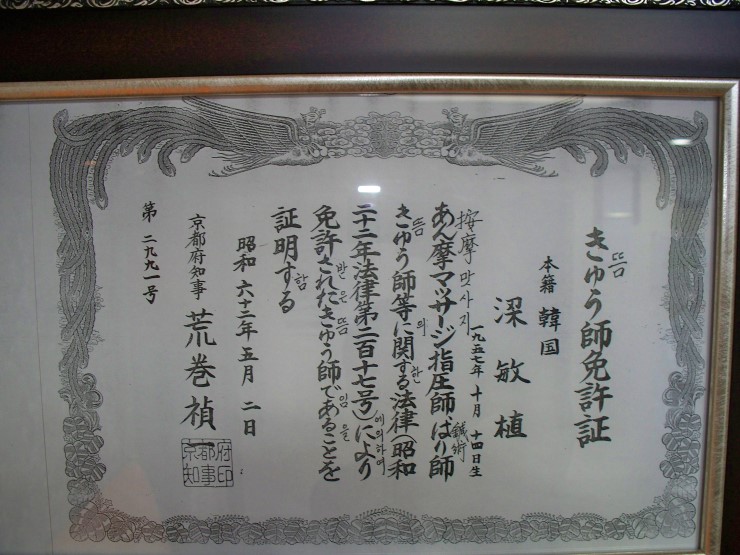 뜸
きゅう師免許証
本籍 韓国
梁 敏 植
一九五七年 十月 十四日生
按摩 맛사지 鍼術
あん摩マッサージ指圧師、はり師
뜸 의 한
きゅう師等に関する法律(昭和
에의하여
二十二年法律第二百十七号)により
받은 뜸 임을
免許されたきゅう師であることを
함
証明する
昭和 六十二年 五月 二日
京都府知事 荒巻禎
京都府知事印
第 二九九一号